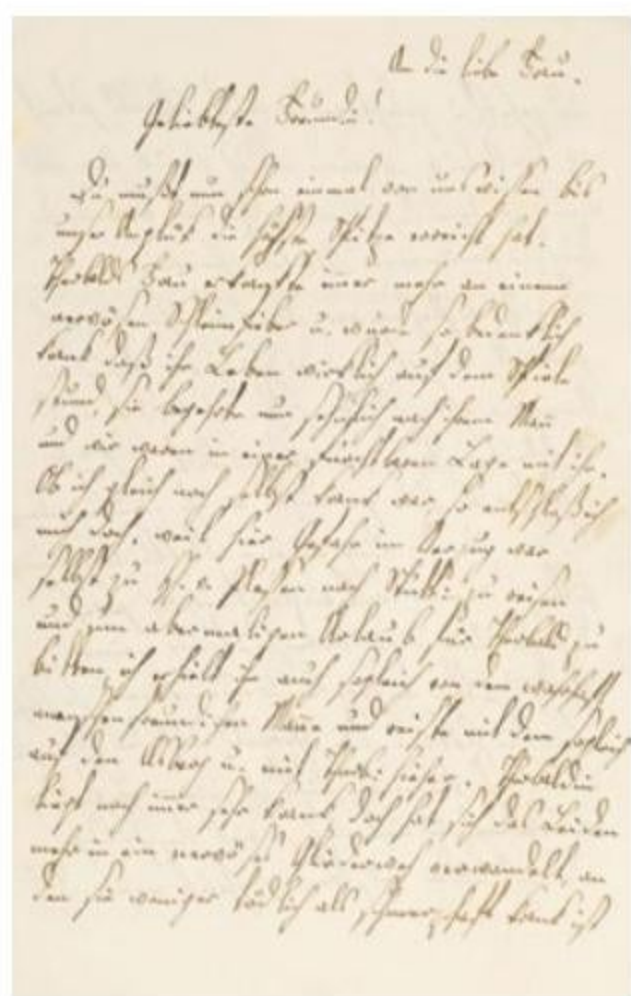 An die liebe Frau.
Geliebteste Freundin!
Du mußt nun schon einmal von uns wissen bis
unser Unglük die höchste Spitze erreicht hat.
Theobalds Frau erkrankte immer mehr an einem
nervösen Schleimfieber u. wurde so bedenklich
krank daß ihr Leben wirklich auf dem Spiele
stund, sie begehrte nun sehnlich nach ihrem Mann
und wir waren in einer furchtbaren Lage mit ihr.
Ob ich gleich noch selbst krank war so entschloß ich
mich doch, weil hier Gefahr im Verzug war
selbst zu H. v. nach Stuttg. zu reisen
und um abermaligen Urlaub für Theobald zu
bitten, ich erhielt ihn auch sogleich von dem wahrhaft
menschenfreundlichen Manne und reiste mit dem sogleich
auf den Asberg u. mit Theob. hieher. Theobaldin
liegt noch immer sehr krank doch hat sich das Leiden
mehr in ein nervöses Gliederweh verwandelt, an
dem sie weniger tödlich als schmerzhaft krank ist